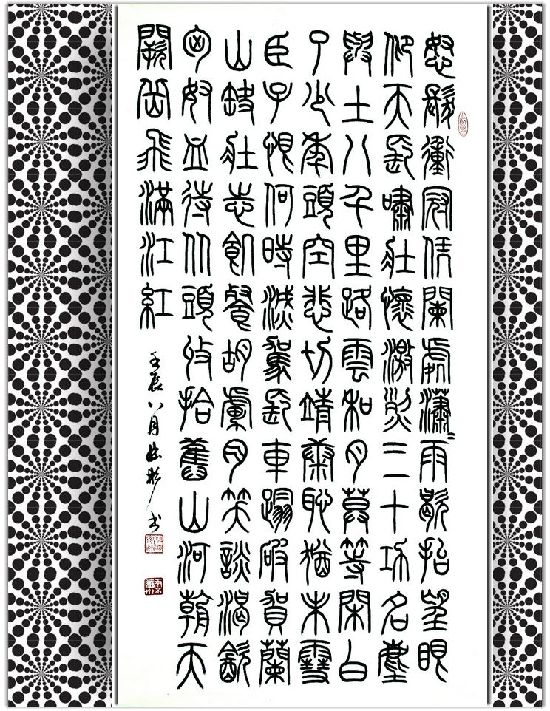 怒髮衝冠凭闌處瀟〻雨歇抬望眼
仰天長嘯壯懷激烈三十功名塵
與土八千里路雲和月莫等閑白
了少年頭空悲切靖康恥猶未雪
臣子恨何時滅駕長車踏破賀蘭
山缺壯志飢餐胡虜肉笑談渴飲
匈奴血待從頭收拾舊山河朝天
闕岳飛滿江紅
壬辰八月书